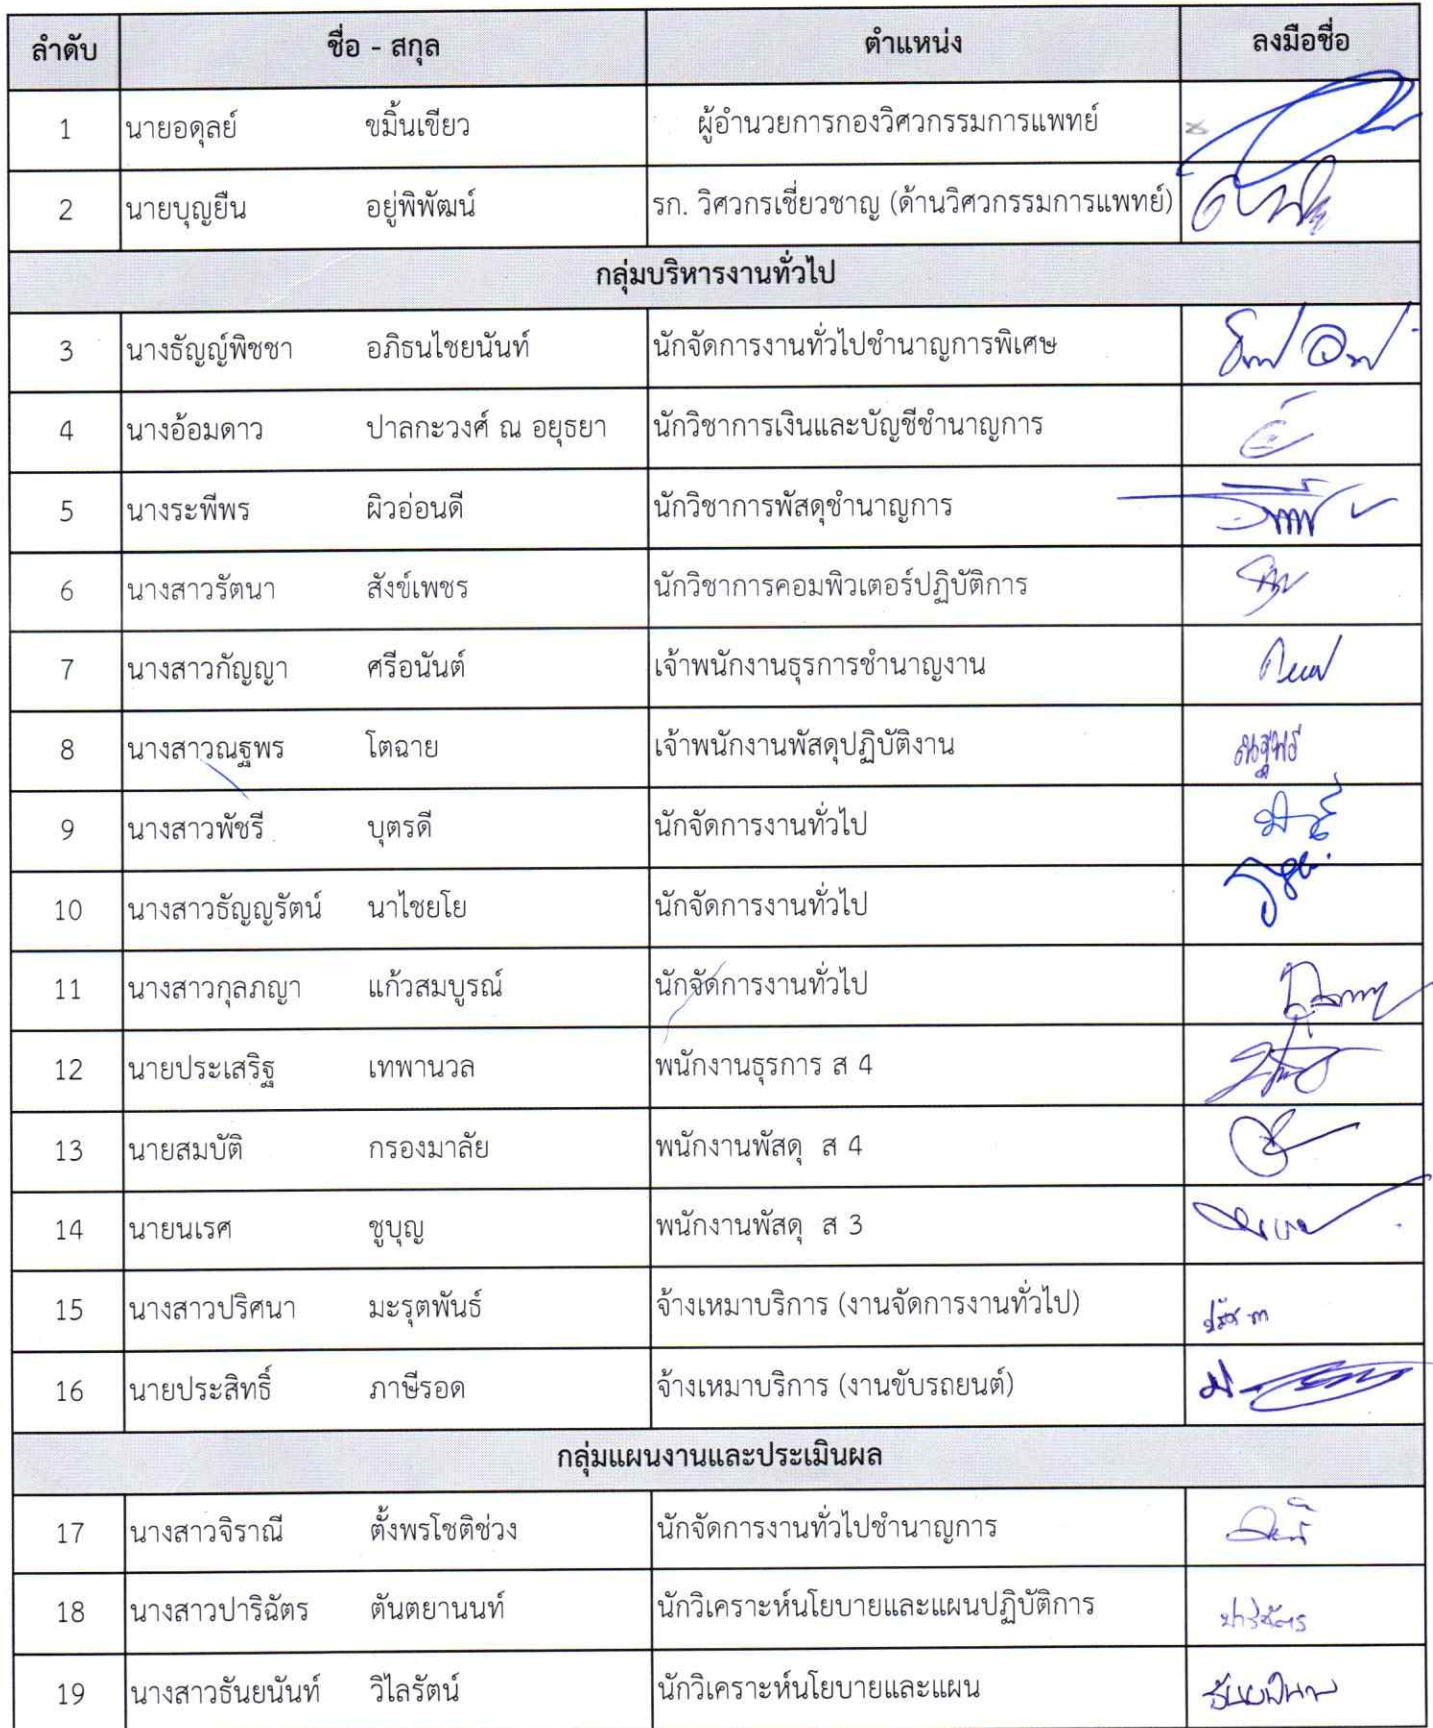 ลำดับ ชื่อ - สกุล ตำแหน่ง ลงมือชื่อ
1 นายอดุลย์ ขมิ้นเขียว ผู้อำนวยการกองวิศวกรรมการแพทย์
2 นายบุญยืน อยู่พิพัฒน์ รก. วิศวกรเชี่ยวชาญ (ด้านวิศวกรรมการแพทย์)
กลุ่มบริหารงานทั่วไป
3 นางธัญญ์พิชชา อภิธนไชยนันท์ นักจัดการงานทั่วไปชำนาญการพิเศษ
4 นางอ้อมดาว ปาลกะวงศ์ ณ อยุธยา นักวิชาการเงินและบัญชีชำนาญการ
5 นางระพีพร ผิวอ่อนดี นักวิชาการพัสดุชำนาญการ
6 นางสาวรัตนา สังข์เพชร นักวิชาการคอมพิวเตอร์ปฏิบัติการ
7 นางสาวกัญญา ศรีอนันต์ เจ้าพนักงานธุรการชำนาญงาน
8 นางสาวณฐพร โตฉาย เจ้าพนักงานพัสดุปฏิบัติงาน ณฐพร
9 นางสาวพัชรี บุตรดี นักจัดการงานทั่วไป
10 นางสาวธัญญรัตน์ นาไชยโย นักจัดการงานทั่วไป
11 นางสาวกุลภญา แก้วสมบูรณ์ นักจัดการงานทั่วไป
12 นายประเสริฐ เทพานวล พนักงานธุรการ ส 4
13 นายสมบัติ กรองมาลัย พนักงานพัสดุ ส 4
14 นายนเรศ ชูบุญ พนักงานพัสดุ ส 3
15 นางสาวปริศนา มะรุตพันธ์ จ้างเหมาบริการ (งานจัดการงานทั่วไป)
16 นายประสิทธิ์ ภาษีรอด จ้างเหมาบริการ (งานขับรถยนต์)
กลุ่มแผนงานและประเมินผล
17 นางสาวจิราณี ตั้งพรโชติช่วง นักจัดการงานทั่วไปชำนาญการ
18 นางสาวปาริฉัตร ตันตยานนท์ นักวิเคราะห์นโยบายและแผนปฏิบัติการ ปาริฉัตร
19 นางสาวธันยนันท์ วิไลรัตน์ นักวิเคราะห์นโยบายและแผน